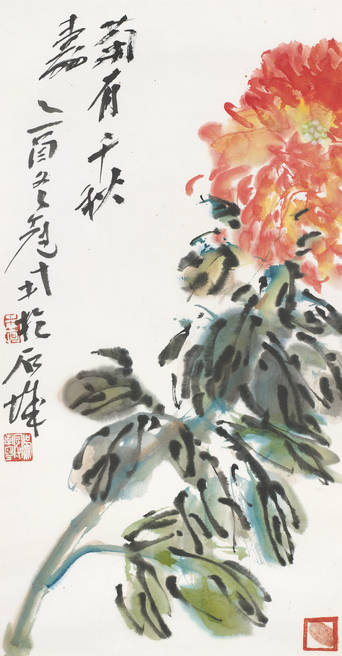 菊有千秋
壽乙酉冬於石城